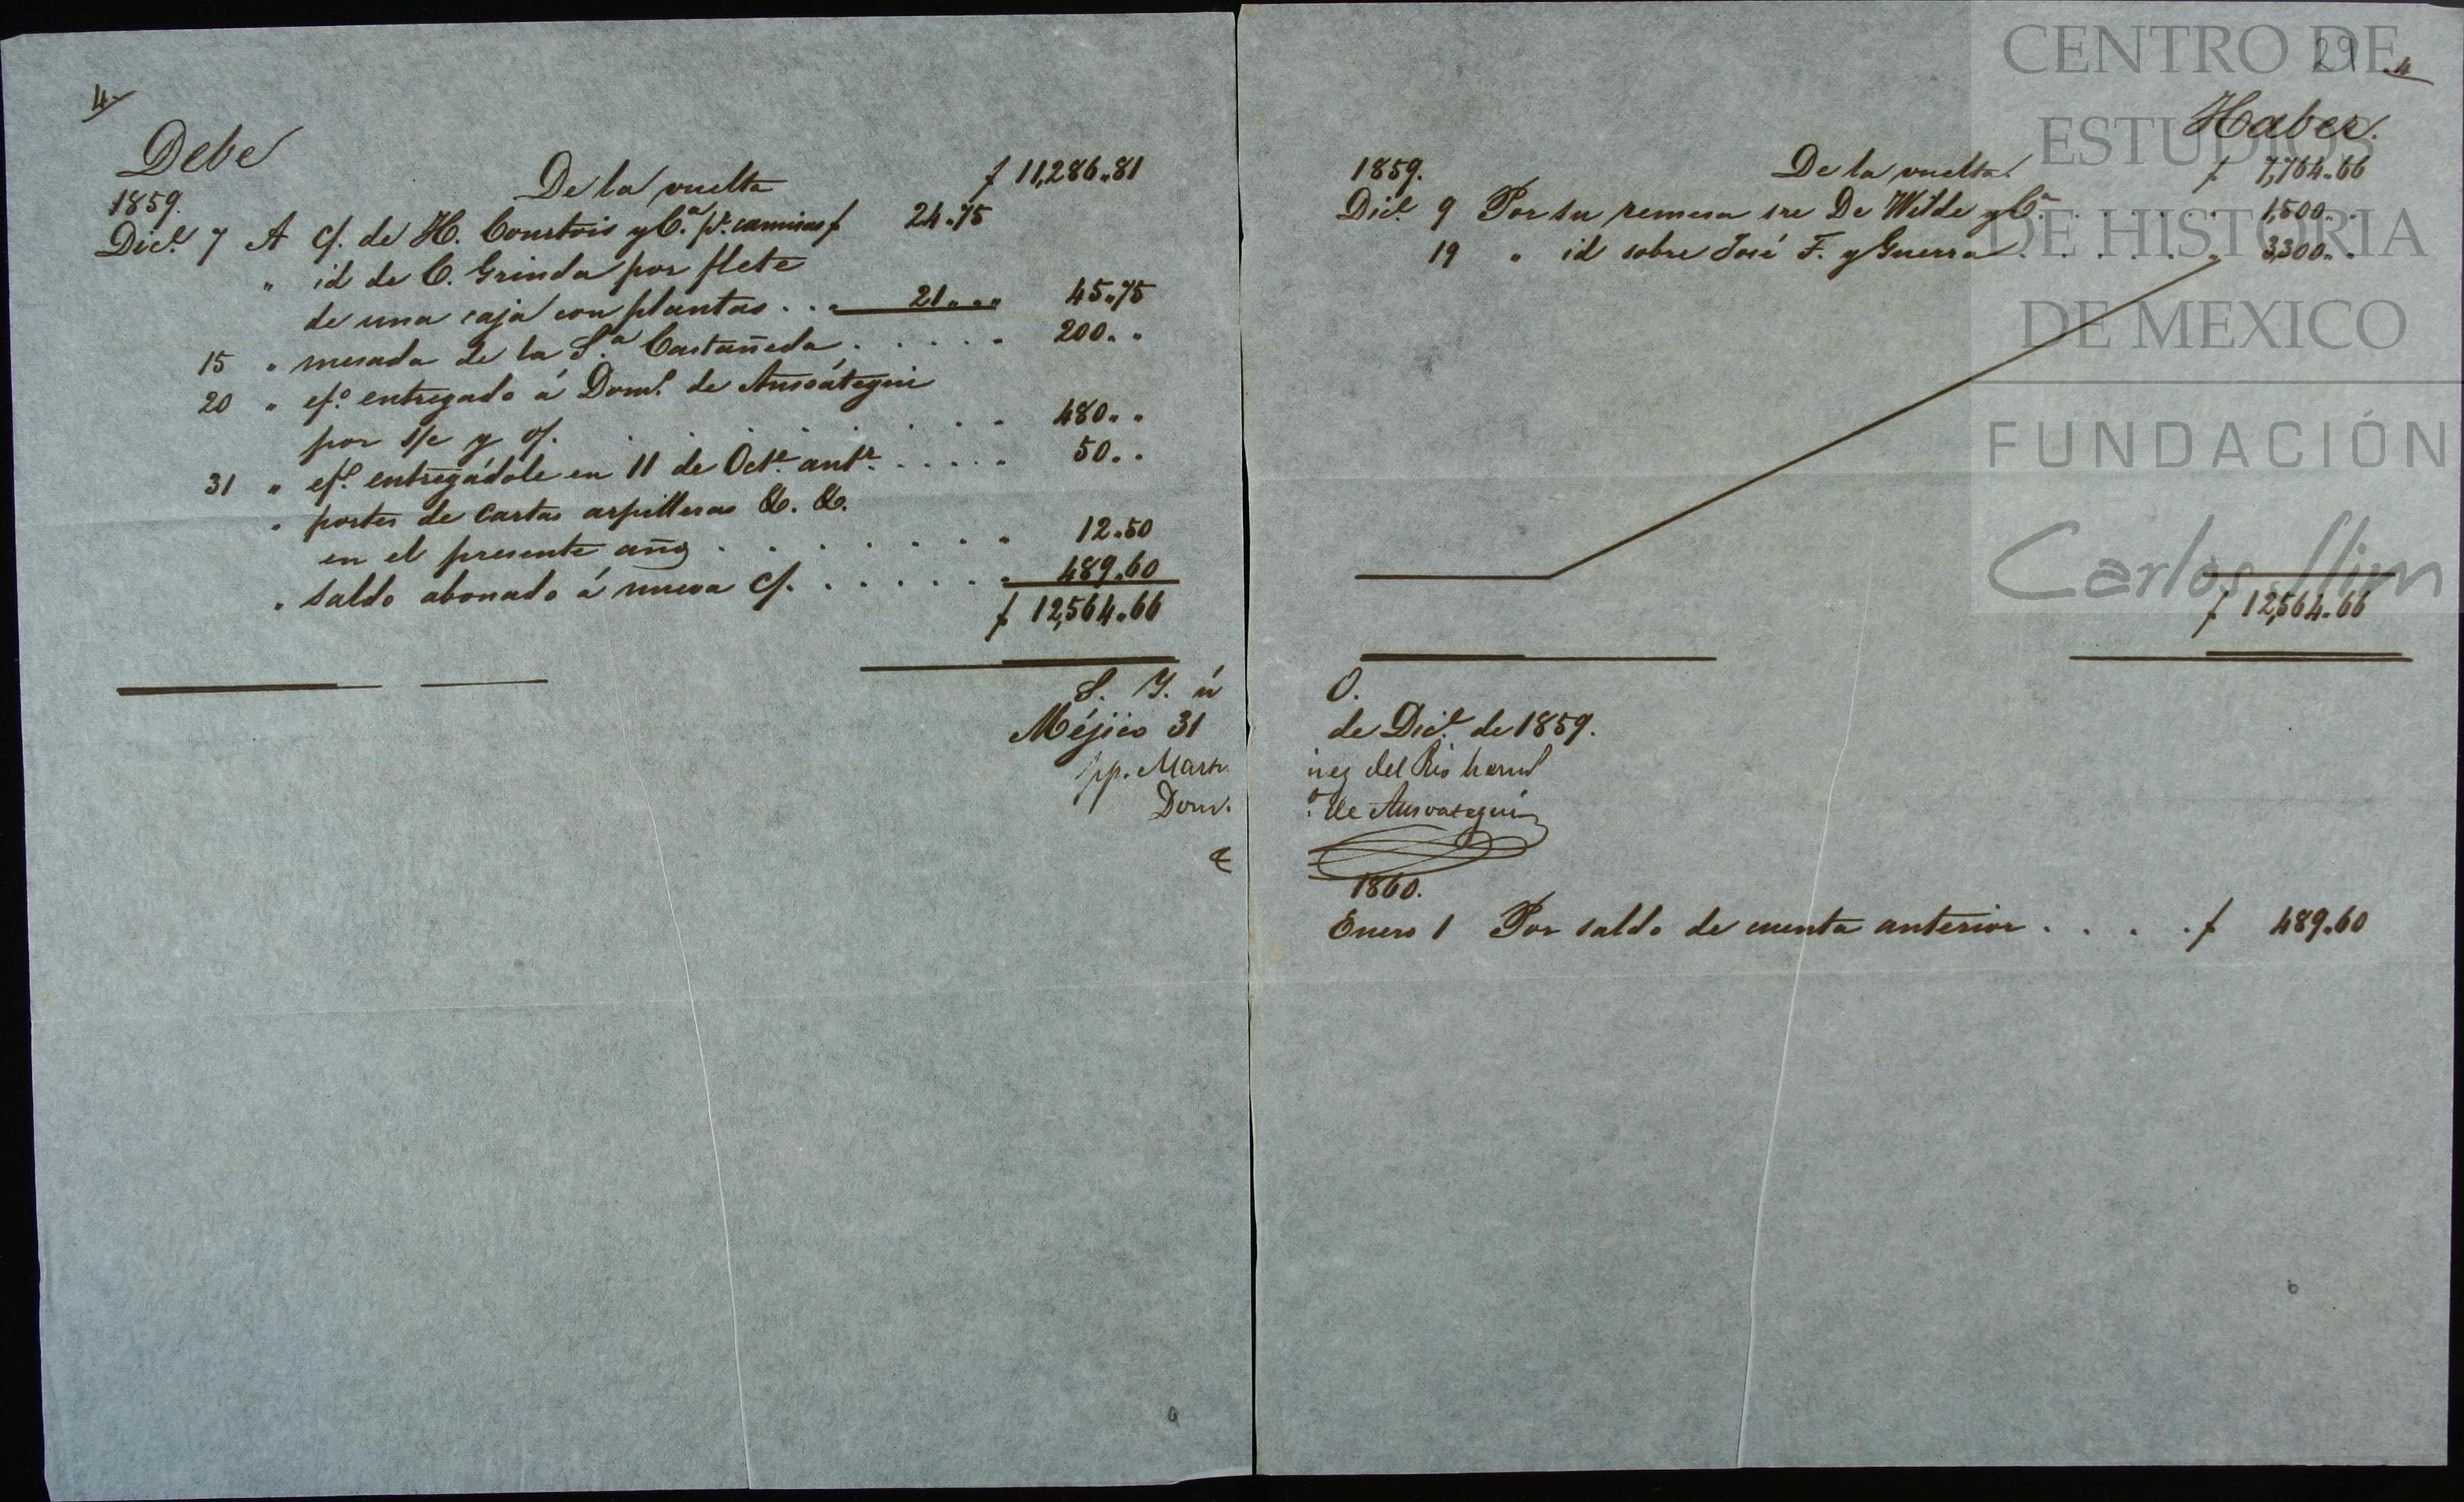 4
Debe
De la vuelta f 11,286.,81
1859.
Dice. 7 A c/. de H. Courtois y Ca. pr. camisas f 24.,75
" id de C. Grinda por flete
de una caja con plantas . . " 21.,, " 45.,75
15 " mesada de la Sa. Castañeda . . . . . " 200.,"
20 " efo. entregado á Domo. de Ansoátegui
por s/c y o/. . . . . . . . " 480.,"
31 " efo. entregádole en 11 de Octe. antr. . . . . . " 50.,"
" portes de cartas arpilleras &. &.
en el presente año . . . . . . . " 12.,50
" saldo abonado á nueva c/. . . . . . . " 489.,60
f 12,564.,66
S. Y. ú
Méjico 31
pp. Mart
Dom.
&
29 4
Haber.
1859. De la vuelta. f 7,764.,66
Dice. 9 Por su remesa sre De Wilde y Ca. . . . . . " 1,500.,"
19 " id sobre José F. y Guerra . . . . . . " 3,300.,"
f 12,564.,66
O.
de Dice. de 1859.
inez del Rio hermo
o. de Ansoategui
1860.
Enero 1 Por saldo de cuenta anterior . . . . f 489.,60
a
b
CENTRO DE
ESTUDIOS
DE HISTORIA
DE MEXICO
FUNDACIÓN
Carlos Slim